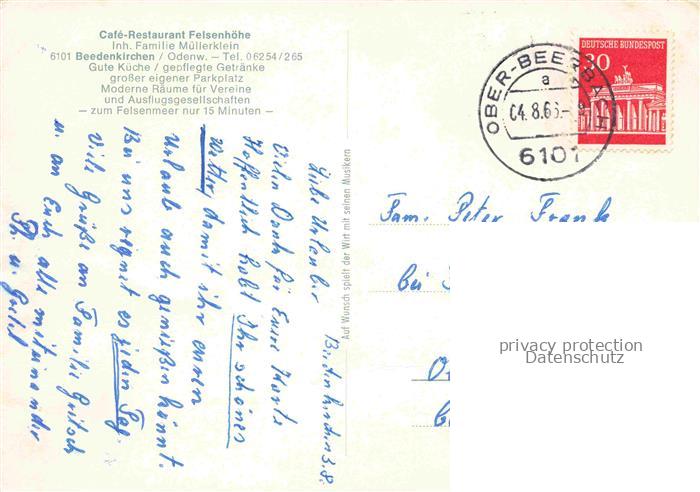 Café-Restaurant Felsenhöhe
Inh. Familie Müllerklein
6101 Beedenkirchen / Odenw. – Tel. 06254/265
Gute Küche / gepflegte Getränke
großer eigener Parkplatz
Moderne Räume für Vereine
und Ausflugsgesellschaften
– zum Felsenmeer nur 15 Minuten –
Beedenkirchen 3.8.
Liebe Urlauber
Vielen Dank für Eure Karte
Hoffentlich habt Ihr schönes
Wetter, damit ihr euren
Urlaub auch genießen könnt.
Bei uns regnet es jeden Tag.
Viele Grüße an Familie Fritsch
u. an Euch alle miteinander
u. Gretel
Auf Wunsch spielt der Wirt mit seinen Musikern
DEUTSCHE BUNDESPOST
30
OBER-BEERBACH
a
04.8.6
6101
Fam. Peter Frank
bei
privacy protection
Datenschutz